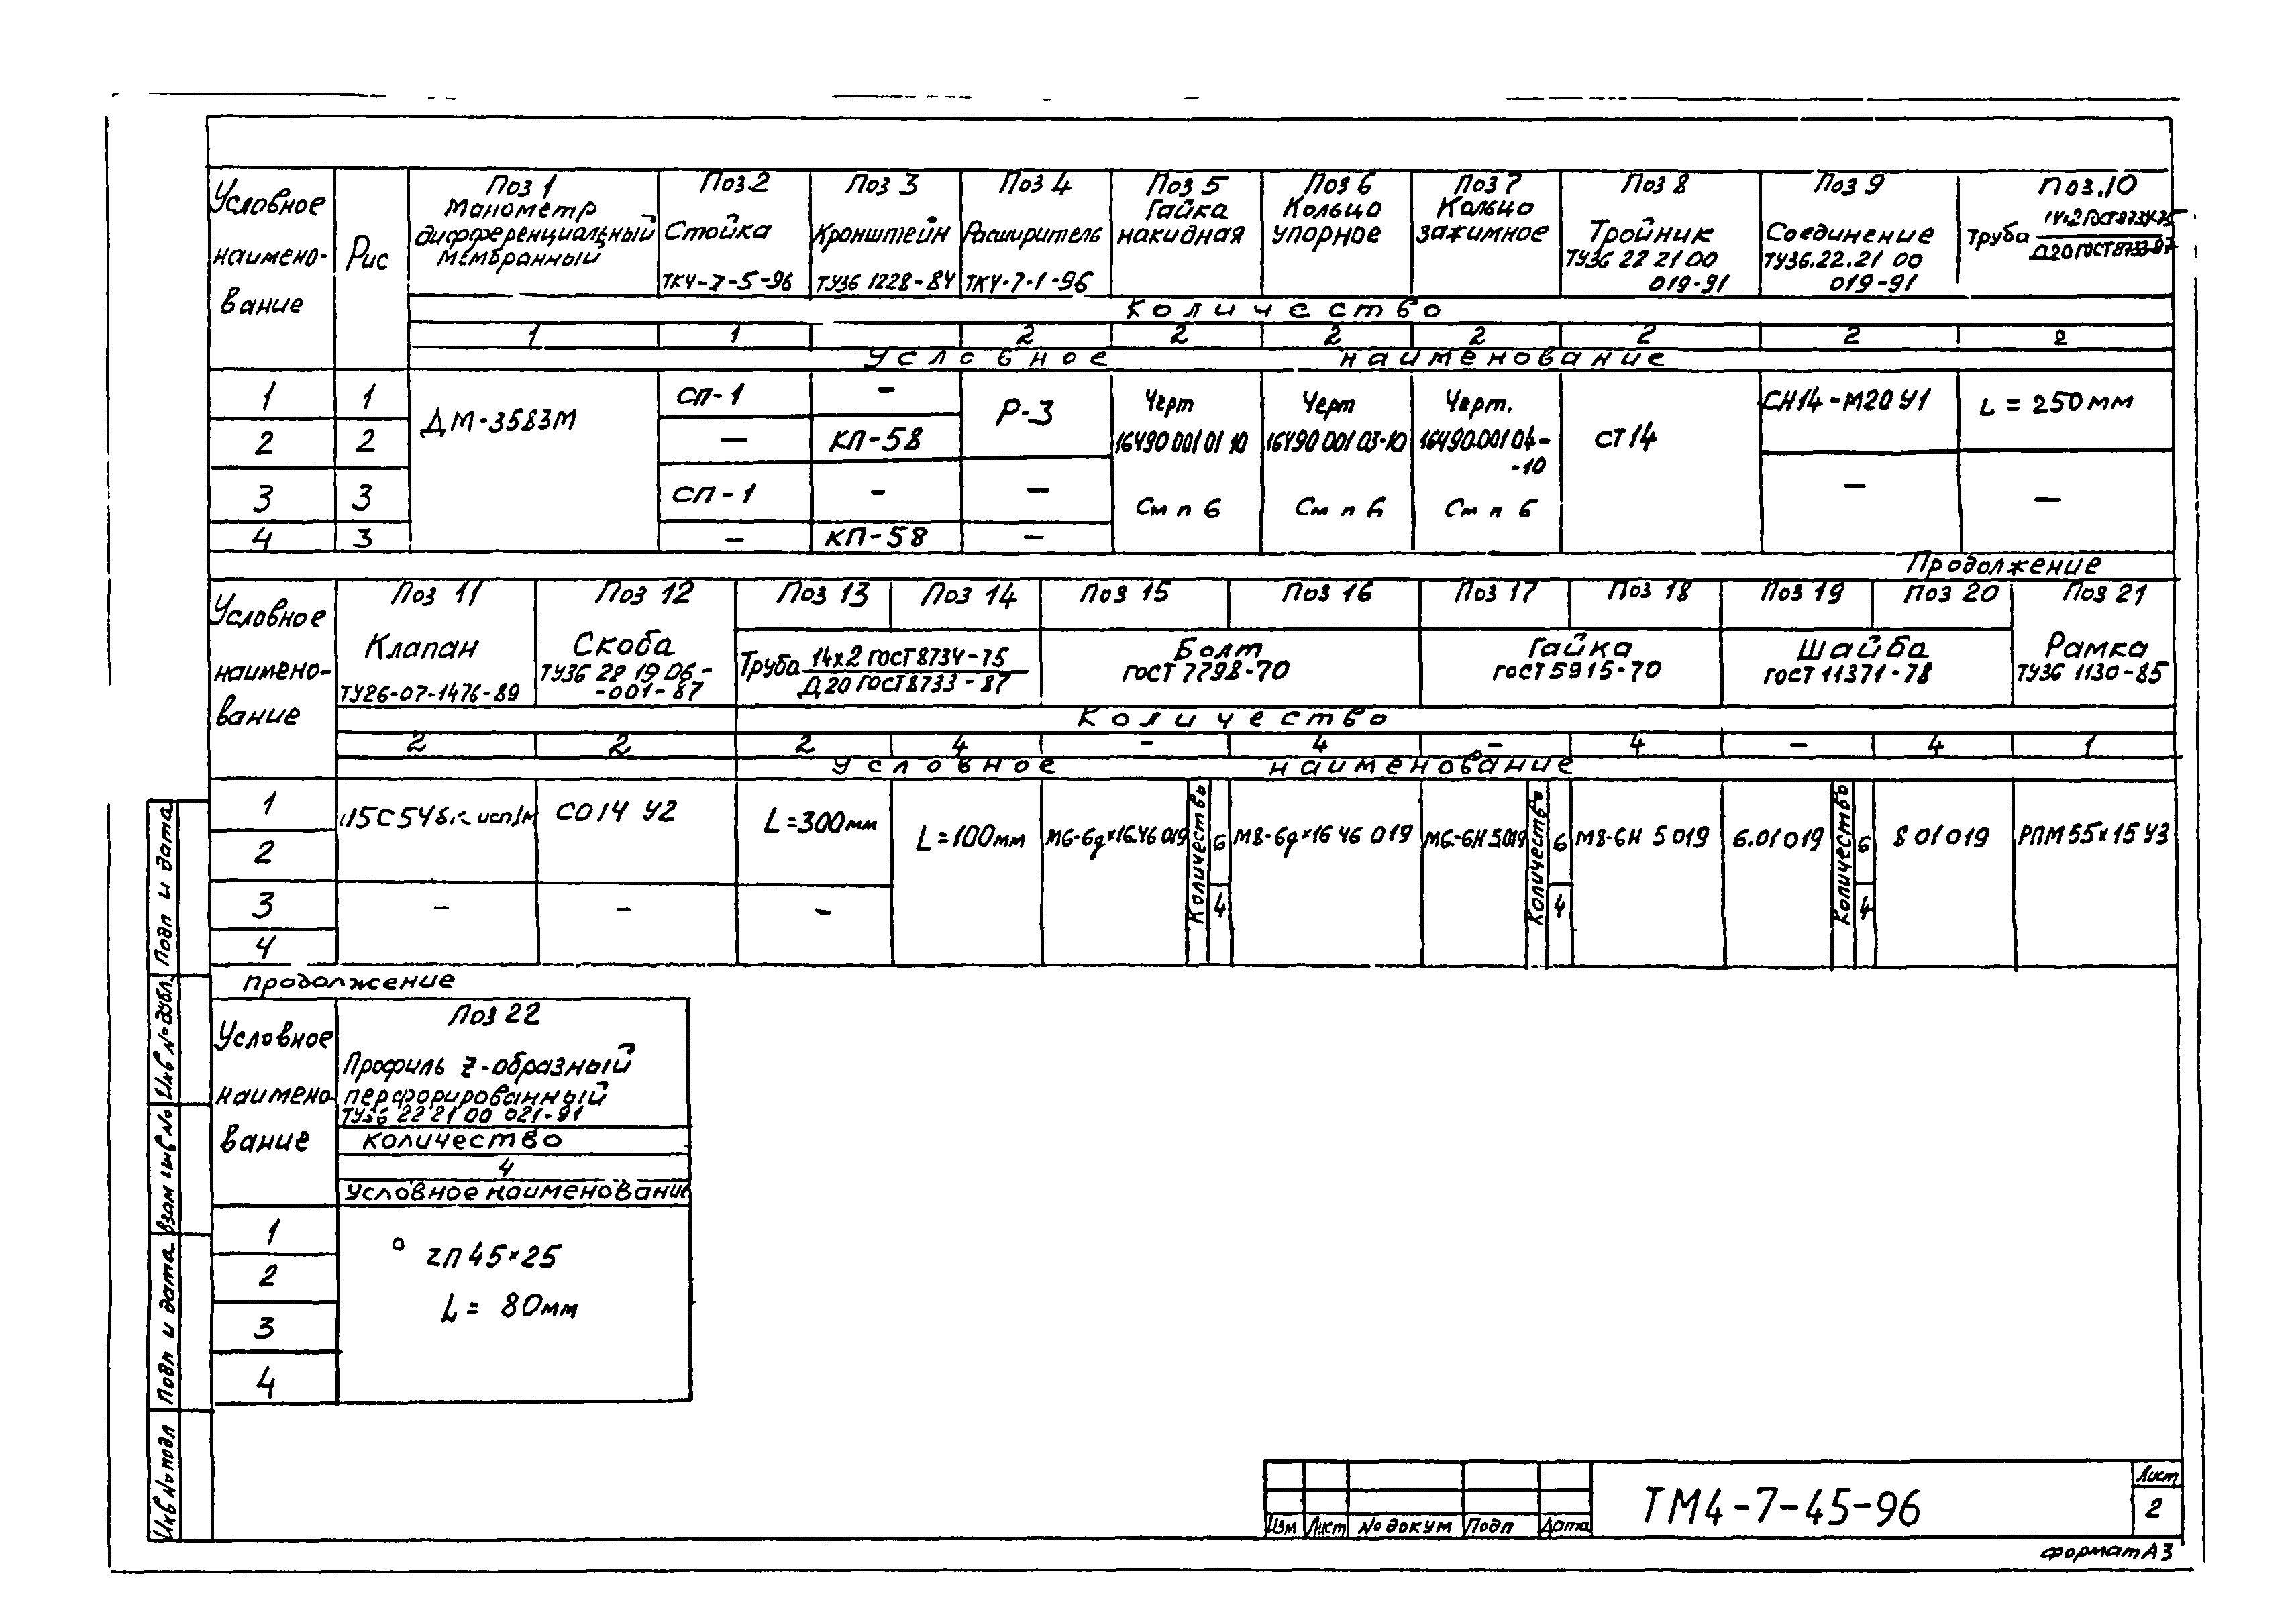 Условное наименование
Рис
Поз 1 Манометр дифференциальный мембранный
Поз 2 Стойка ТК4-7-5-96
Поз 3 Кронштейн ТУ36 1228-84
Поз 4 Расширитель ТК4-7-1-96
Поз 5 Гайка накидная
Поз 6 Кольцо упорное
Поз 7 Кольцо зажимное
Поз 8 Тройник ТУ36 22 21 00 019-91
Поз 9 Соединение ТУ36.22.21 00 019-91
Поз.10 Труба 14х2 ГОСТ 8734-75 Д20 ГОСТ 8733-87
Количество
1 1 2 2 2 2 2 2 2
Условное наименование
1 1 ДМ-3583М СП-1 - Р-3 Черт 16490 001 01 10 Черт 16490 001 03-10 Черт. 16490.001 04--10 СТ14 СН14-М20 У1 L = 250 мм
2 2 - КП-58
3 3 СП-1 - - См п 6 См п 6 См п 6 - -
4 3 - КП-58 -
Продолжение
Условное наименование
Поз 11 Клапан ТУ26-07-1476-89
Поз 12 Скоба ТУ36 22 19 06--001-87
Поз 13 Поз 14
Труба 14х2 ГОСТ 8734-75 Д20 ГОСТ 8733-87
Поз 15 Поз 16
Болт ГОСТ 7798-70
Поз 17 Поз 18
Гайка ГОСТ 5915-70
Поз 19 Поз 20
Шайба ГОСТ 11371-78
Поз 21 Рамка ТУ36 1130-85
Количество
2 2 2 4 - 4 - 4 - 4 1
Условное наименование
1
2
3
4
СО14 У2
L=300мм
L=100мм
М6-6g×16.46 019 Количество 6 4
М8-6g×16 46 019
М6-6Н 5.019 Количество 6 4
М8-6Н 5 019
6.01 019 Количество 6 4
8 01 019
РПМ 55×15 У3
- - -
продолжение
Условное наименование
Поз 22
Профиль Z-образный
перфорированный
ТУ36 22 21 00 021-91
количество
4
условное наименование
1
2
3
4
ZП 45×25
L= 80мм
Подп и дата
Инв № дубл.
Взам инв №
Подп и дата
Инв № подл
Изм Лист № докум Подп Дата
ТМ4-7-45-96
Лист
2
формат А3